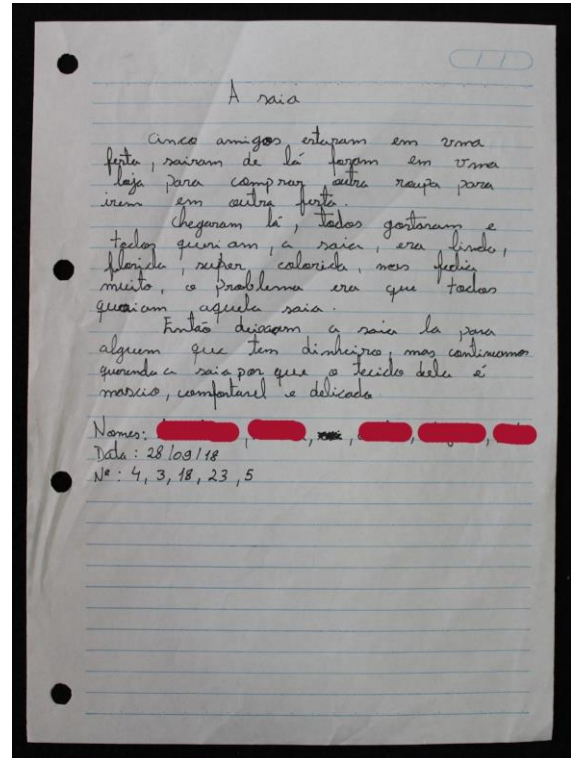 A saia
Cinco amigos estavam em uma
festa, sairam de lá foram em uma
loja para comprar outra roupa para
irem em outra festa.
Chegaram lá, todos gostaram e
todos queriam, a saia, era linda,
florida, super colorida, mas fedia
muito, o problema era que todos
queriam aquela saia.
Então deixaram a saia la para
alguem que tem dinheiro, mas continuamos
querendo a saia por que o tecido dela é
mascio, comfortavel e delicado
Nomes:
Data: 28/09/18
Nº: 4, 3, 18, 23, 5